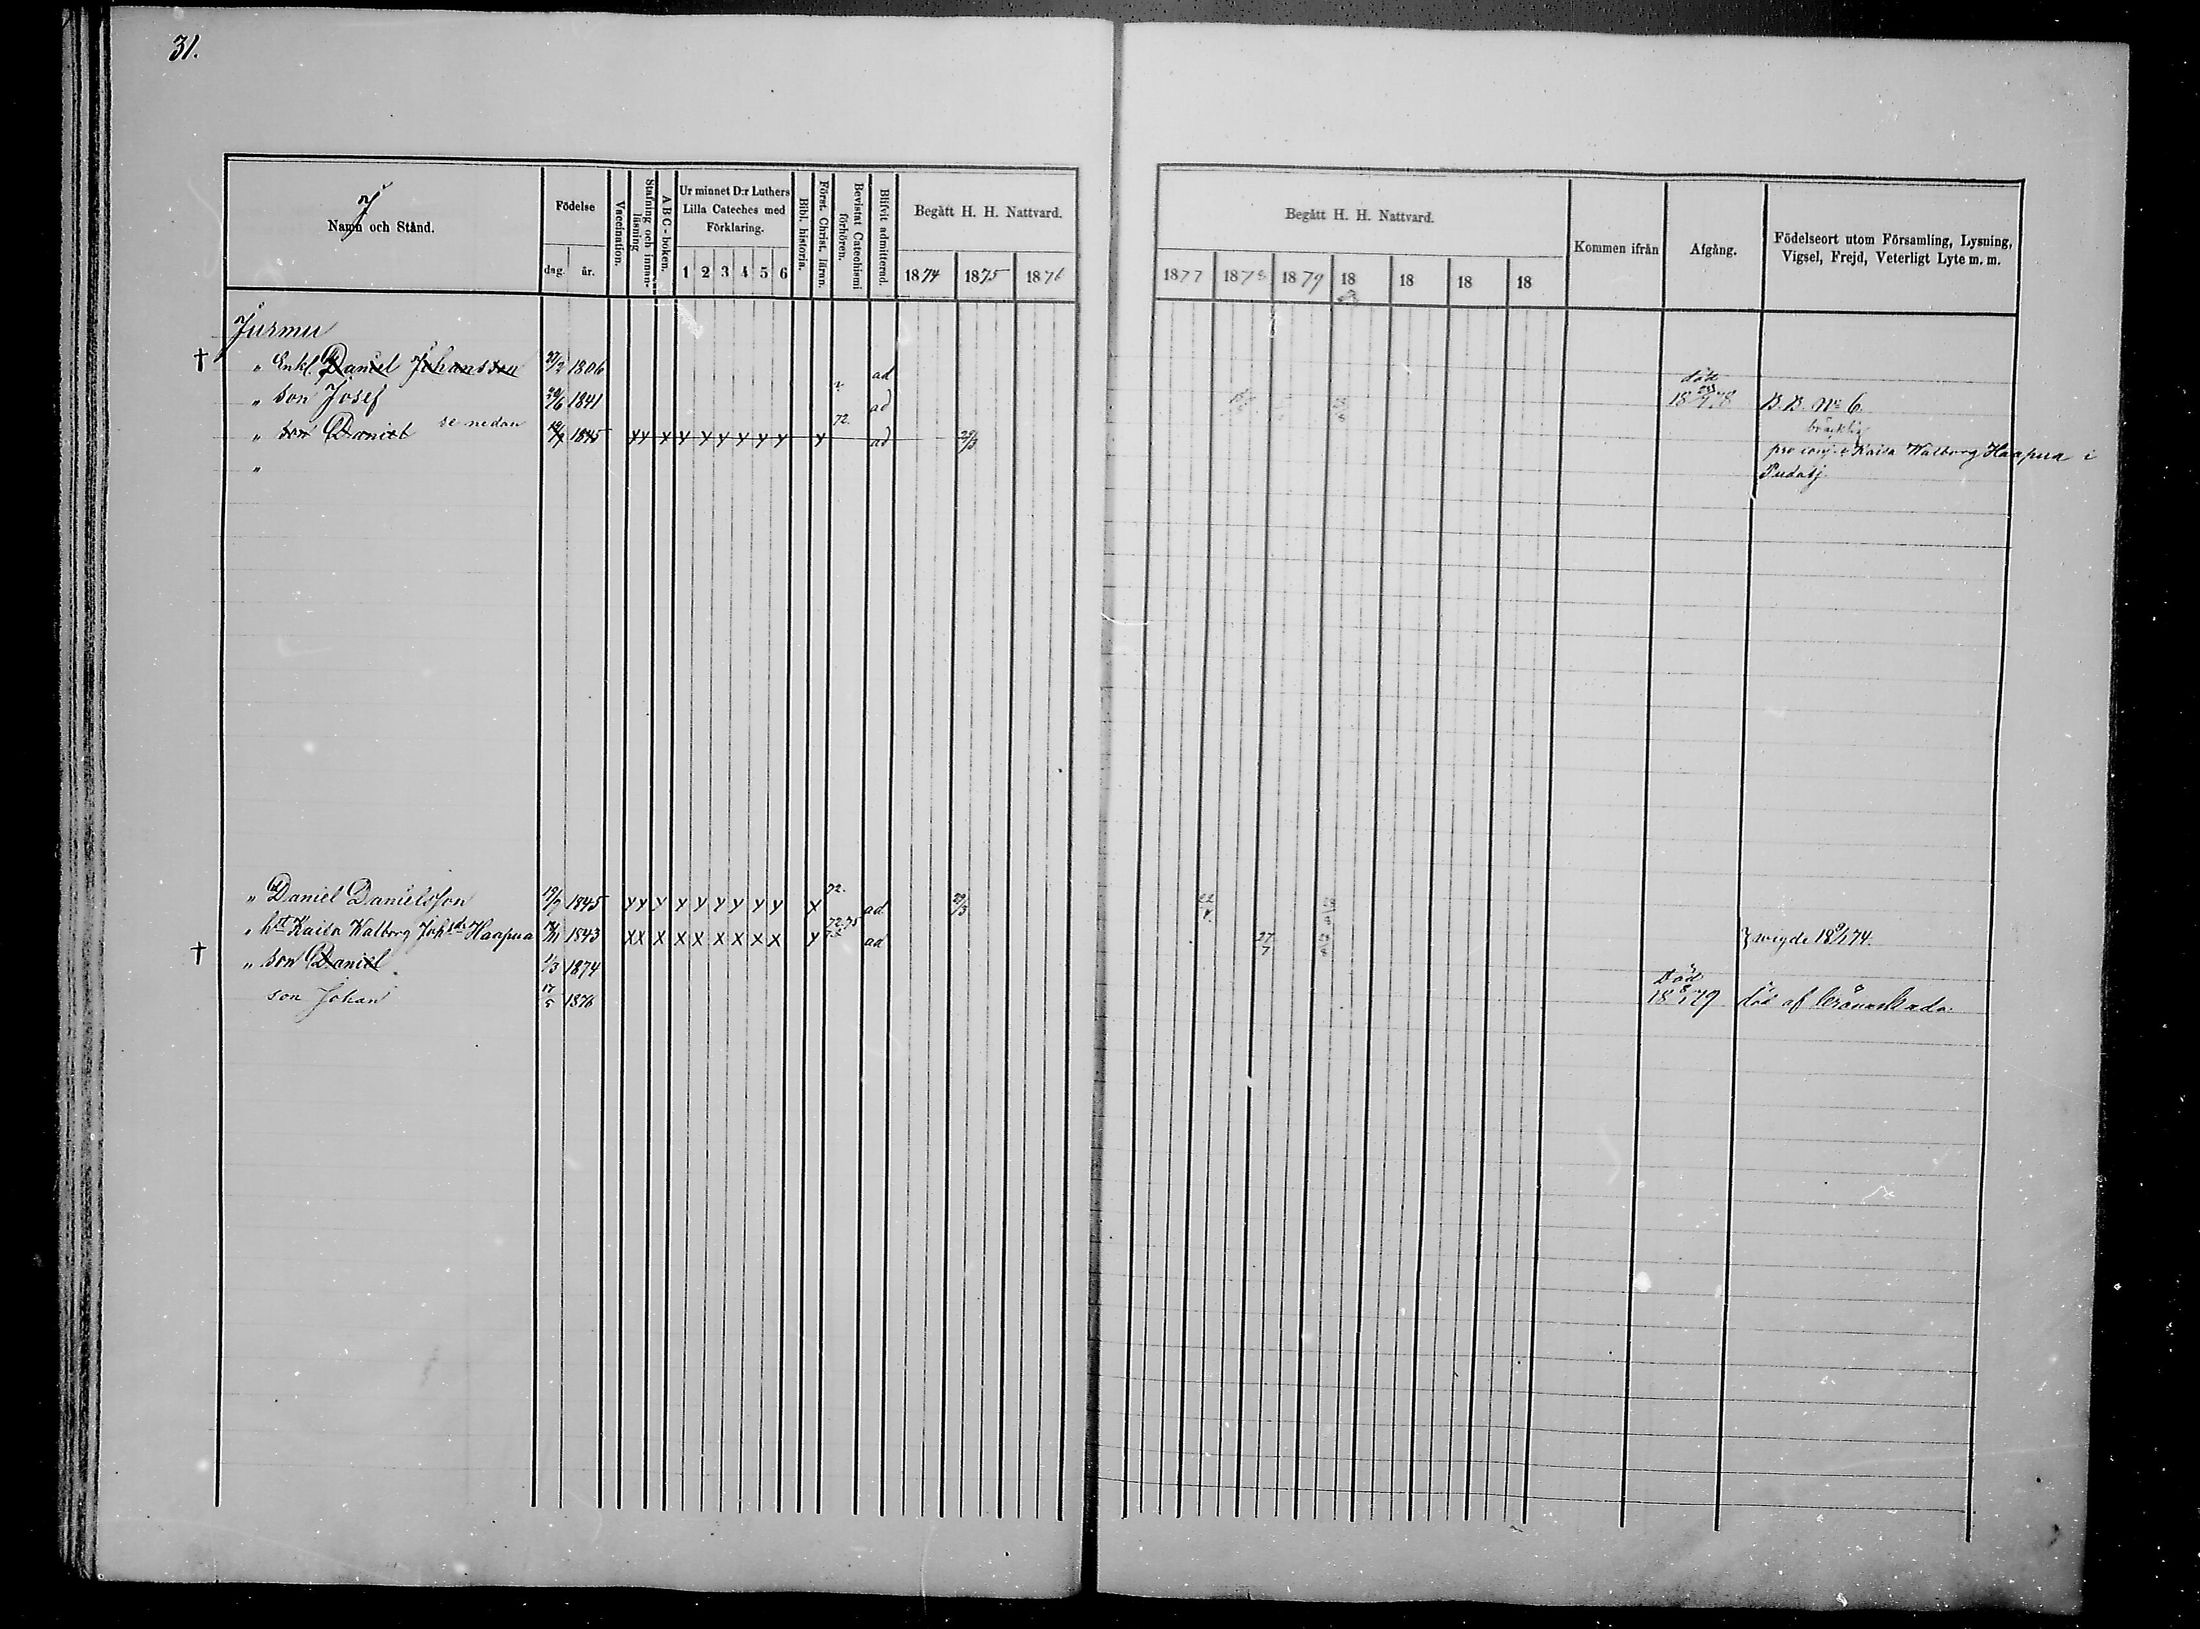 31.
Namn och Stånd.
Födelse
dag.
år.
Vaccination.
Stafning och innanläsning
ABC-boken.
Ur minnet D:r Luthers
Lilla Cateches med
Förklaring.
1 2 3 4 5 6
Bibl. historia.
Först. Christ. läran.
Bevistat Catechismi
förhören.
Blifvit admitterad.
Begått H. H. Nattvard.
1874 1875 1876
Begått H. H. Nattvard.
1877 1878 1879 18 18 18 18
Kommen ifrån
Afgång.
Födelseort utom Församling, Lysning,
Vigsel, Frejd, Veterligt Lyte m. m.
Jurmu
† " Enkl. Daniel Johansson 27/2 1806 ad död
" son Josef 29/6 1841 ad B. B. No 6.
" son Daniel se nedan 19/7 1845 yy x y y y y y y y 72. ad 25/3 bräcklig
" pro conj. Kaisa Walborg Haapua i
Pudasj.
" Daniel Danielsson 19/7 1845 yy y y y y y y y x 72. ad 29/3
" h:st Kaisa Walborg Joh:sdr Haapua 1843 xx x x x x x x x y 72.75 ad 27/7 } wigde 18 9/1 74.
† " son Daniel 1/3 1874 Död
son Johan 17/5 1876 död af brännskada.